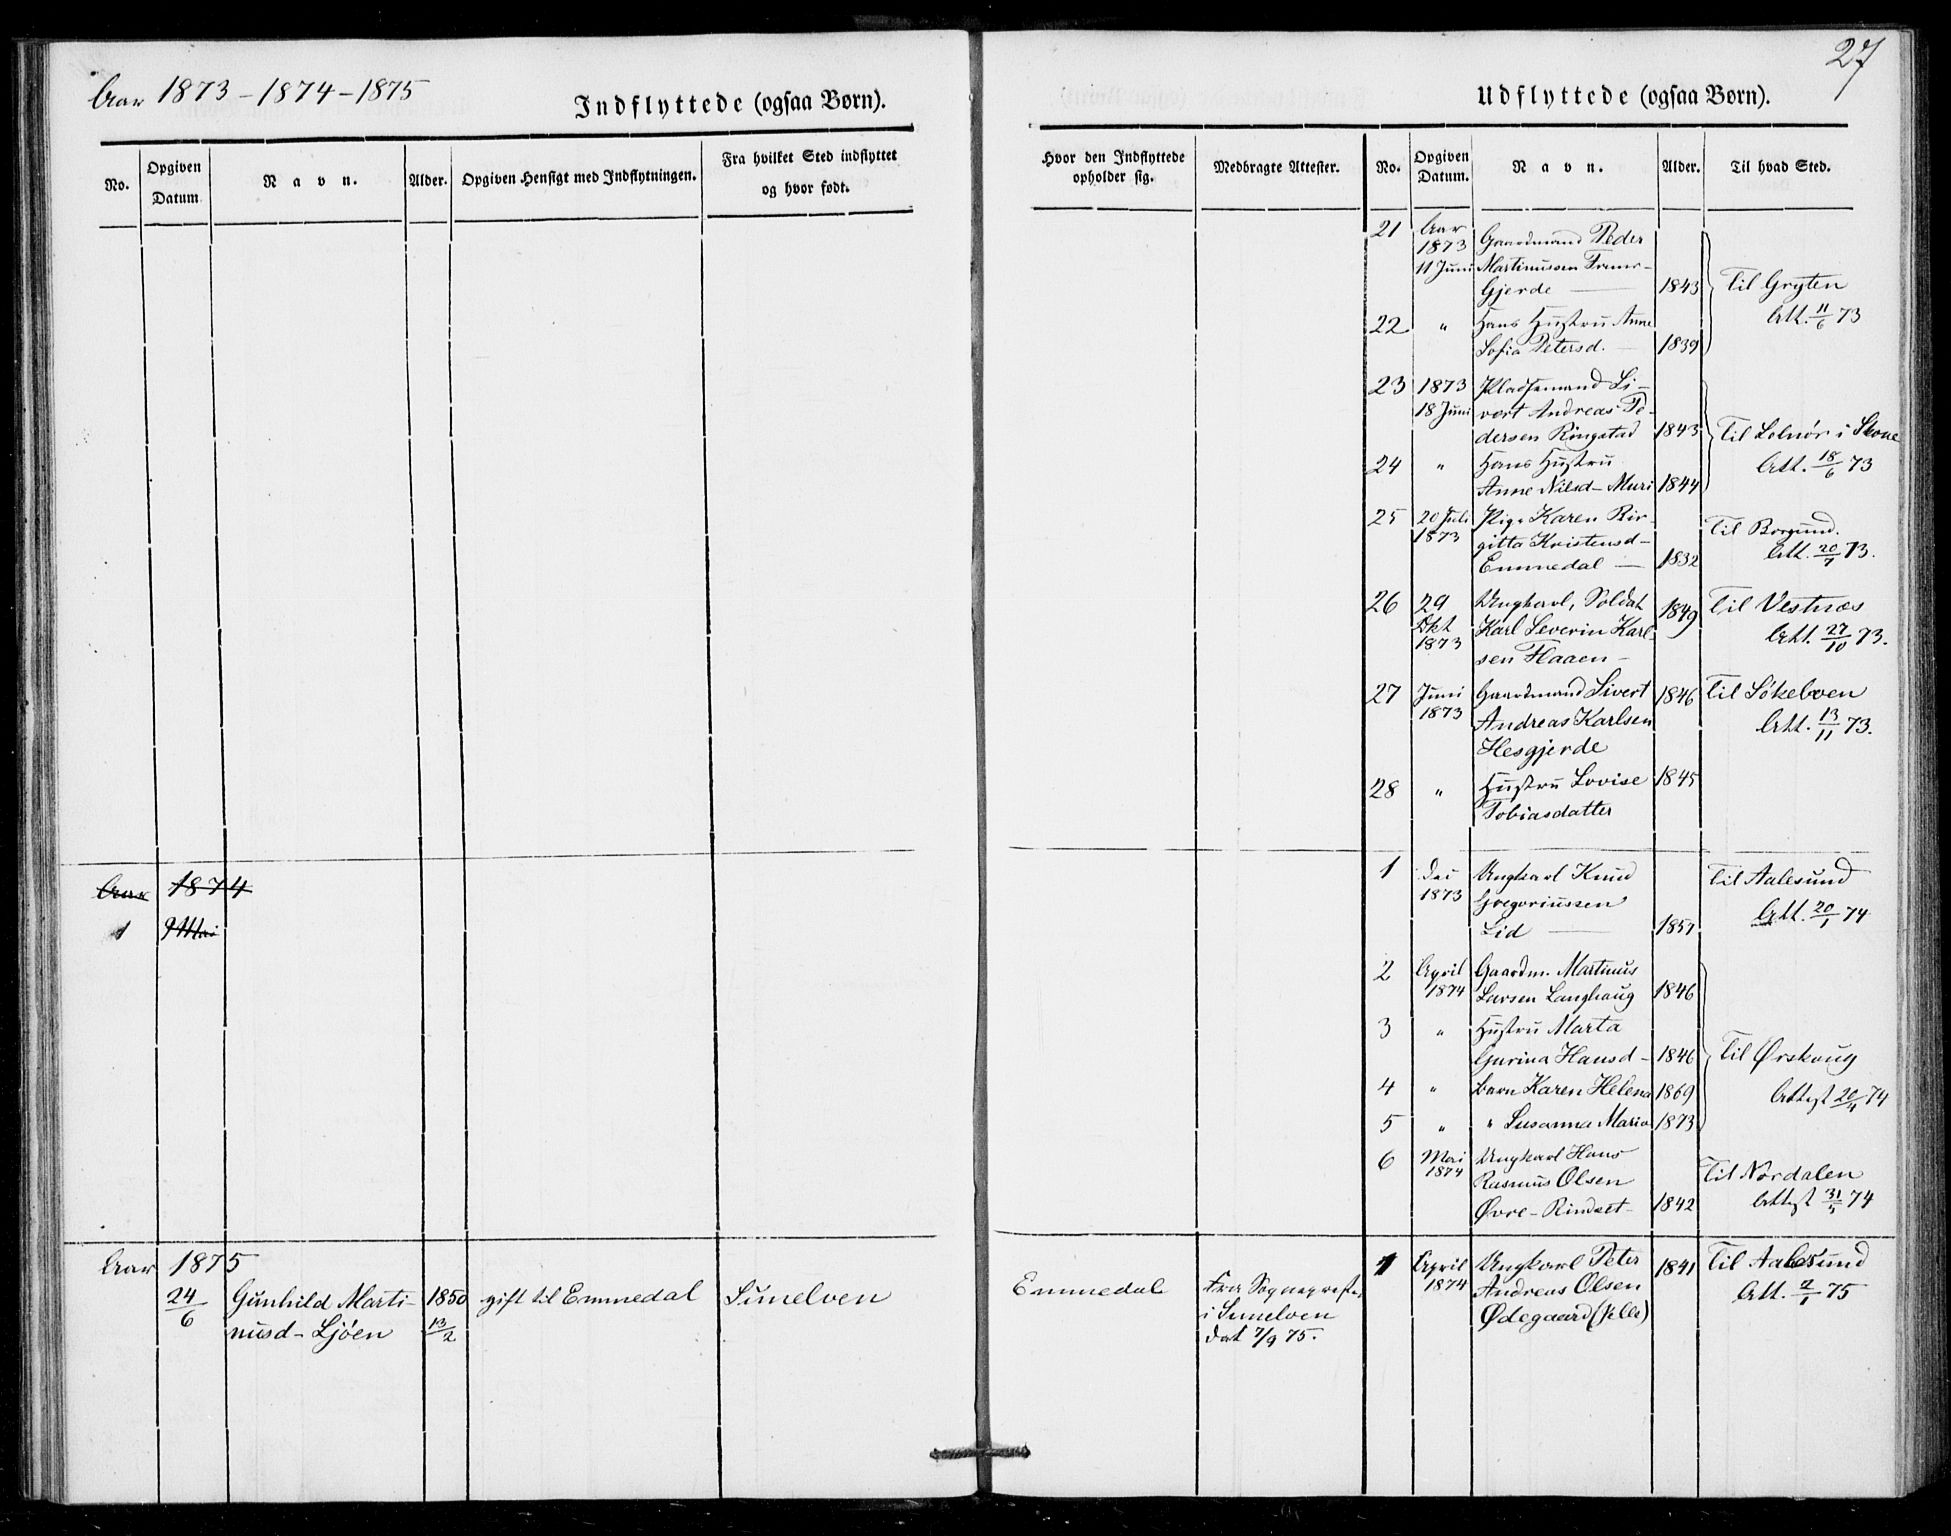 Aar 1873-1874-1875
Indflyttede (ogsaa Børn).
No.
Opgiven
Datum
Navn.
Alder.
Opgiven Hensigt med Indflytningen.
Fra hvilket Sted indflyttet
og hvor født.
Aar 1874
1 9 Mai
Aar 1875
24/6 Gunhild Marti- 1850 gift til Emmedal Sunelven
nusd- Ljöen 13/2
27
Udflyttede (ogsaa Børn).
Hvor den Indflyttede
opholder sig.
Medbragte Attester.
No.
Opgiven
Datum.
Navn.
Alder.
Til hvad Sted.
21 Aar Gaardmand Peder
1873
11 Juni Martinussen
Gjerde 1843 Til Gryten
22 " Hans Hustru Anne Att. 11/6 73
Sofia Petersd. 1839
23 1873 Pladsemand Si-
18 Juni vert Andreas Pe-
dersen Ringstad 1843 Til i
24 " Hans Hustru Att. 18/6 73
Anne Nilsd- Muri 1844
25 20 Juli Pige Karen Bir- Til Borgund.
1873 gitta Kristensd- Att. 20/7 73.
Emmedal 1832
26 29 Ungkarl, Soldat 1849 Til Vestnæs
Okt Karl Severin Karl- Att. 27/10 73.
1873 sen Haaen-
27 Juni Gaardmand Sivert 1846 Til Sökelven
1873 Andreas Karlsen Att. 13/11 73.
Hesgjerde
28 " Hustru Lovise 1845
Tobiasdatter
1 Ungkarl Knud Til Aalesund
1873 Gregoriussen Att. 20/1 74
Lid
2 April Gaardm. Martinus
1874 Larsen Langhaug 1846
3 " Hustru Marta
Gurina Hansd- 1846 Til Ørskoug
4 " Barn Karen Helena 1869 Attest 20/4 74
5 " " Susanna Maria 1873
6 Mai Ungkarl Hans
1874 Rasmus Olsen Til Nordalen
Øvre-Rindset- 1842 Attest 31/5 74
Emmedal Fra Sognepresten
i Sunelven
dat 7/9 75.
1 April Ungkarl Peter 1841 Til Aalesund
1874 Andreas Olsen Att. 2/1 75
Ødegaard